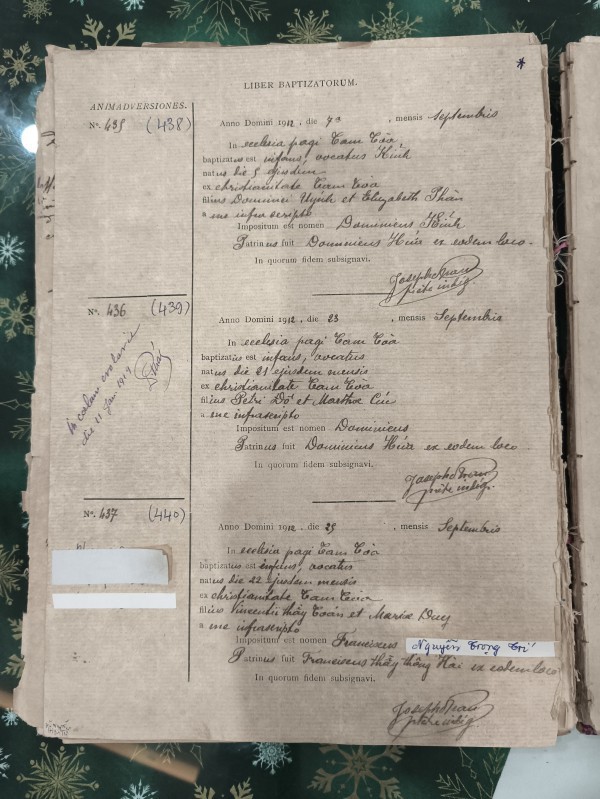 *
LIBER BAPTIZATORUM.
ANIMADVERSIONES.
Nº. 435 (438)
Anno Domini 1912, die , mensis Septembris
In ecclesia pagi Tam Tòa
baptizatus est infans, vocatus Kính
natus die 5 ejusdem
ex christianitate Tam Tòa
filius Dominici Uyính et Elizabeth Phàn
a me infrascripto
Impositum est nomen Dominicus Kính
Patrinus fuit Dominicus Hứa ex eodem loco.
In quorum fidem subsignavi.
Josephus Tran
pbter indig.
Nº. 436 (439)
In coelum evolavit
die 11 Jan 1919
Anno Domini 1912, die 23 , mensis Septembris
In ecclesia pagi Tam Tòa
baptizatus est infans, vocatus
natus die 21 ejusdem mensis
ex christianitate Tam Tòa
filius Petri Đỏ et Martha Cúc
a me infrascripto
Impositum est nomen Dominicus
Patrinus fuit Dominicus Hứa ex eodem loco
In quorum fidem subsignavi.
Josephus Tran
pbter indig.
Nº. 437 (440)
Anno Domini 1912, die 25 , mensis Septembris
In ecclesia pagi Tam Tòa
baptizatus est infans, vocatus
natus die 22 ejusdem mensis
ex christianitate Tam Tòa
filius Vincentii thầy Toán et Maria Duy
a me infrascripto
Impositum est nomen Franciscus Nguyễn Trọng Trí
Patrinus fuit Franciscus thầy thông Hài ex eodem loco
In quorum fidem subsignavi.
Josephus Tran
pbter indig.